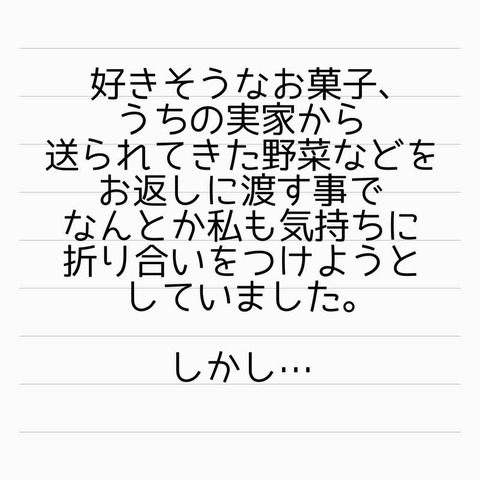 好きそうなお菓子、
うちの実家から
送られてきた野菜などを
お返しに渡す事で
なんとか私も気持ちに
折り合いをつけようと
していました。
しかし…